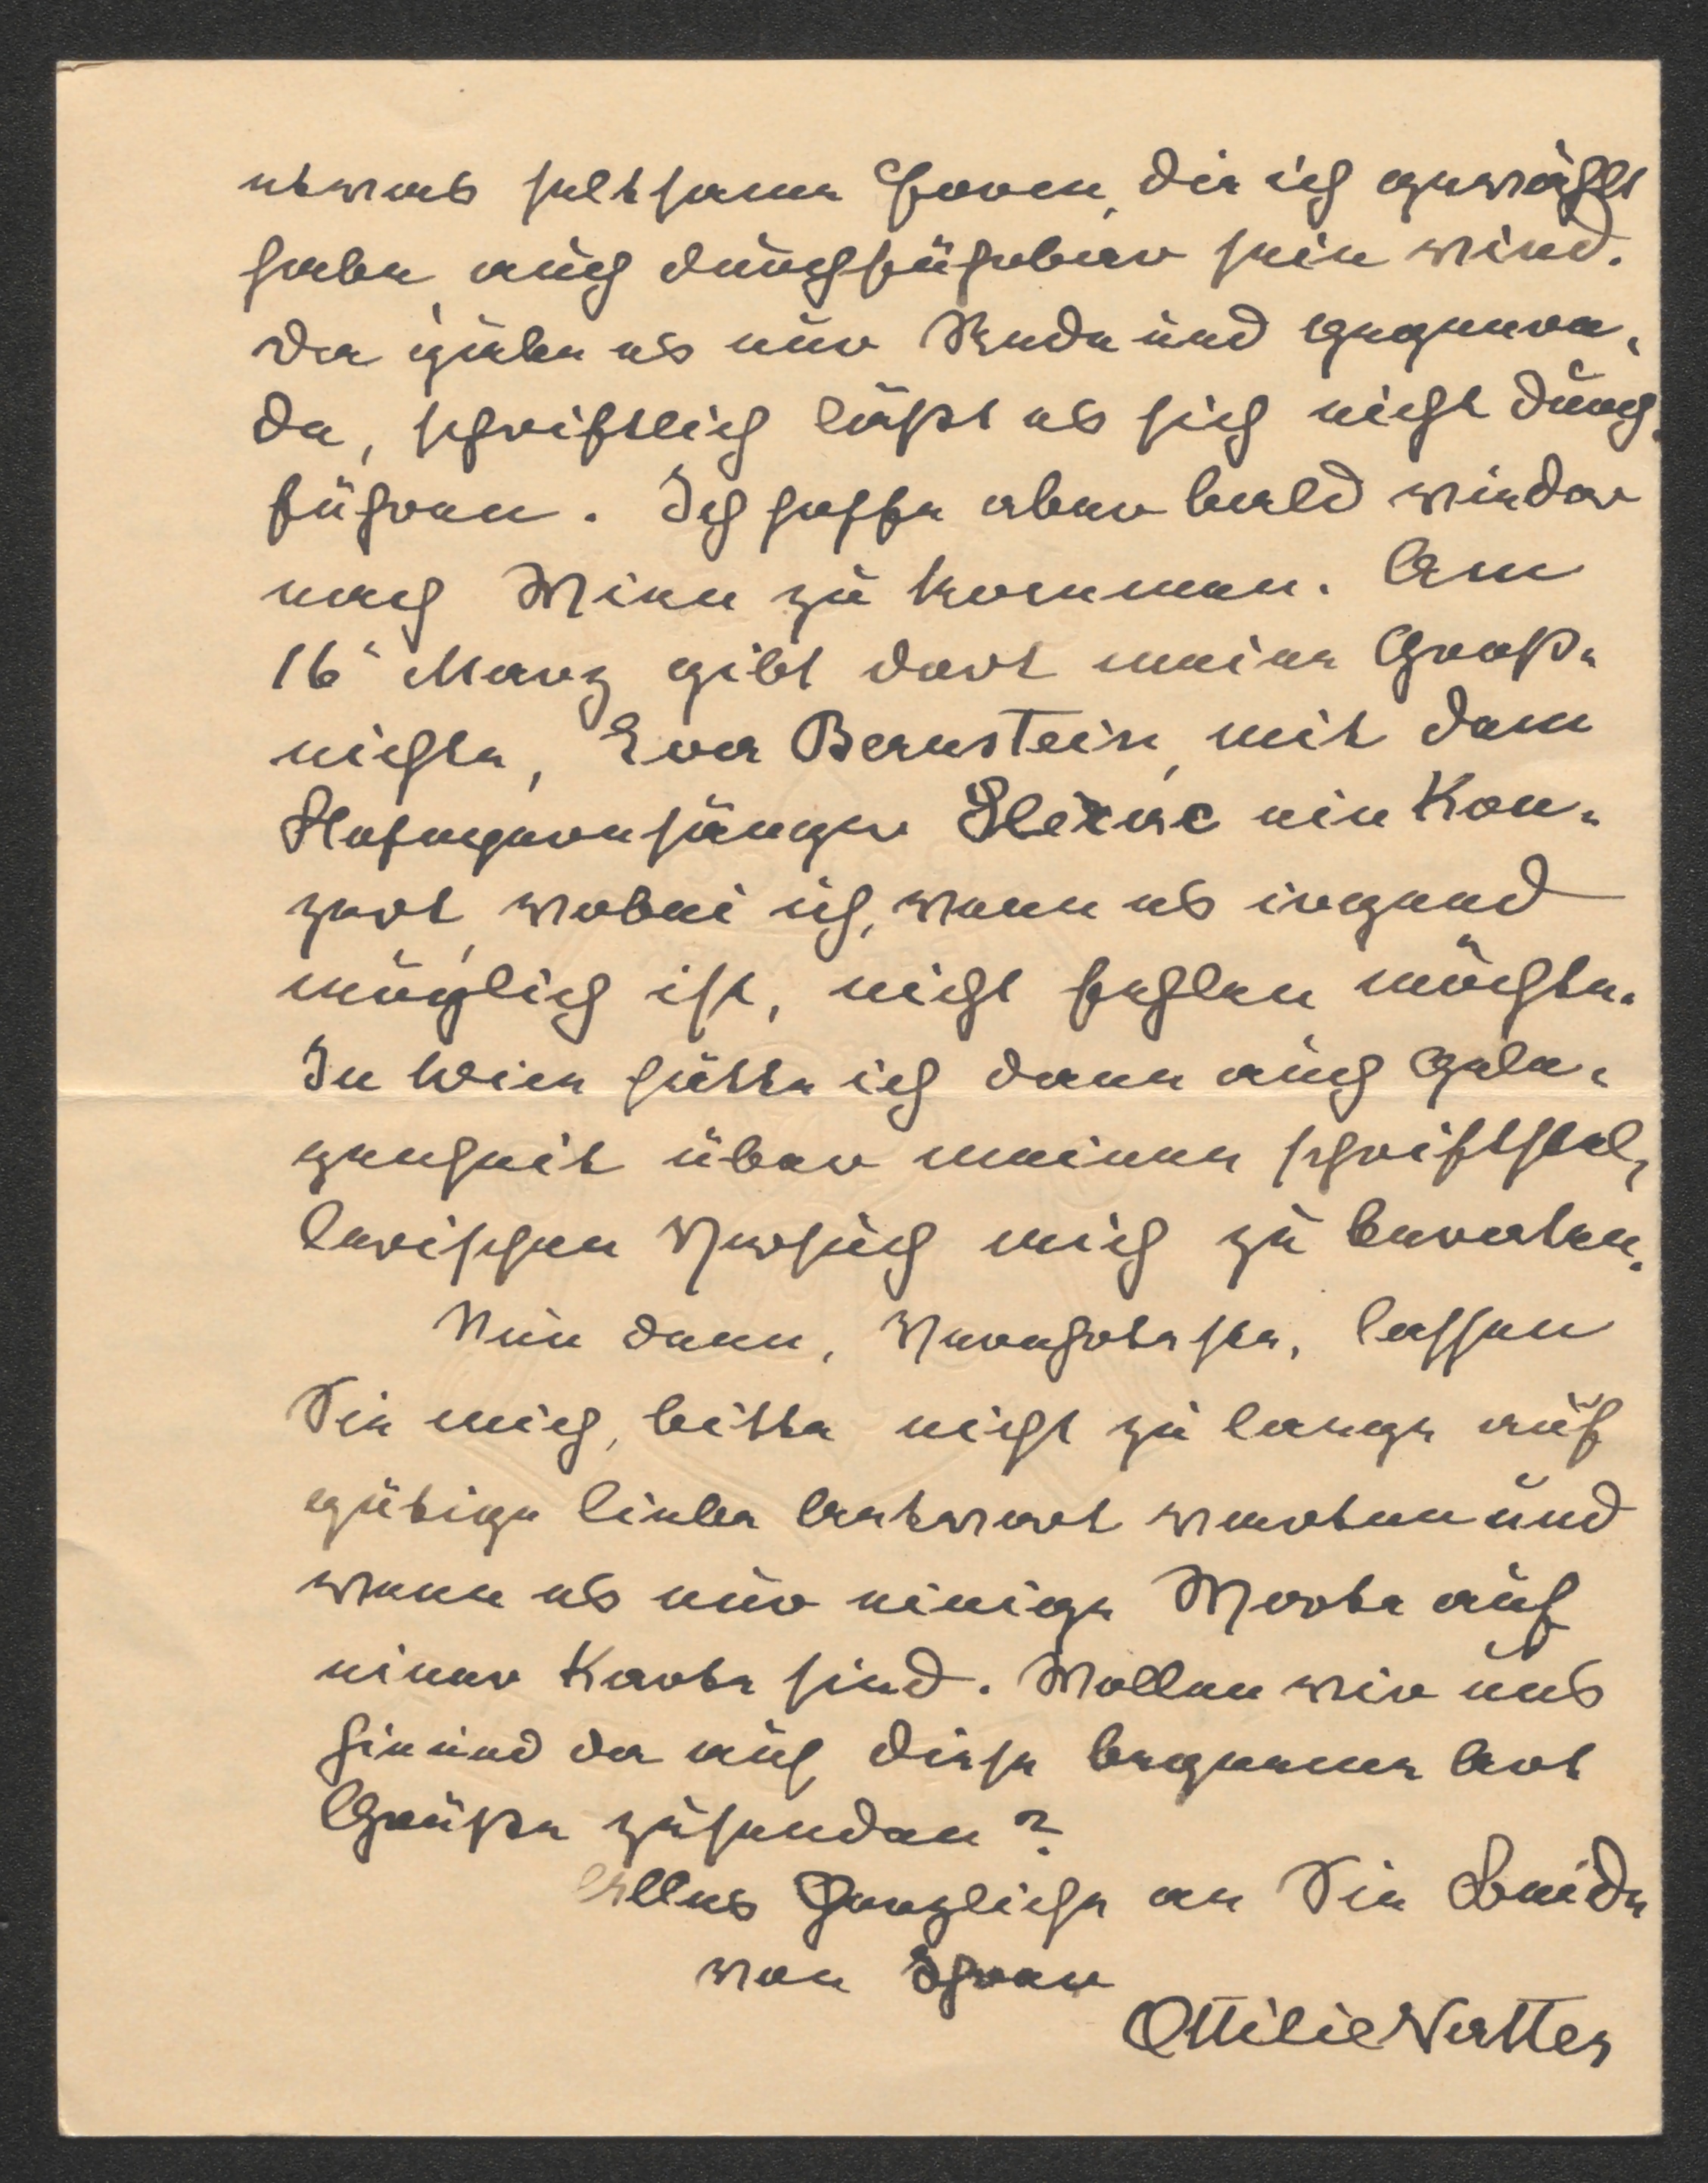 etwas seltsame Form, die ich gewählt
habe, auch durchführbar sein wird.
Da gäbe es nur Rede und Gegenre-
de, schriftlich läßt es sich nicht durch-
führen. Ich hoffe aber bald wieder
nach Wien zu kommen. Am
16. März gibt dort meine Groß-
nichte, Eva Bernstein, mit dem
Hofopernsänger ein Kon-
zert, wobei ich, wenn es irgend
möglich ist, nicht fehlen möchte.
In Wien hätte ich dann auch Gele-
genheit über meinen schriftstel-
lerischen Versuch mich zu beraten.
Nun denn, Verehrteste, lassen
Sie mich, bitte nicht zu lange auf
gütige liebe Antwort warten und
wenn es nur einige Worte auf
einer Karte sind. Wollen wir uns
hie und da auf diese bequeme Art
Grüße zusenden?
Alles Herzliche an Sie Beide
von Ihrer
Ottilie Natter